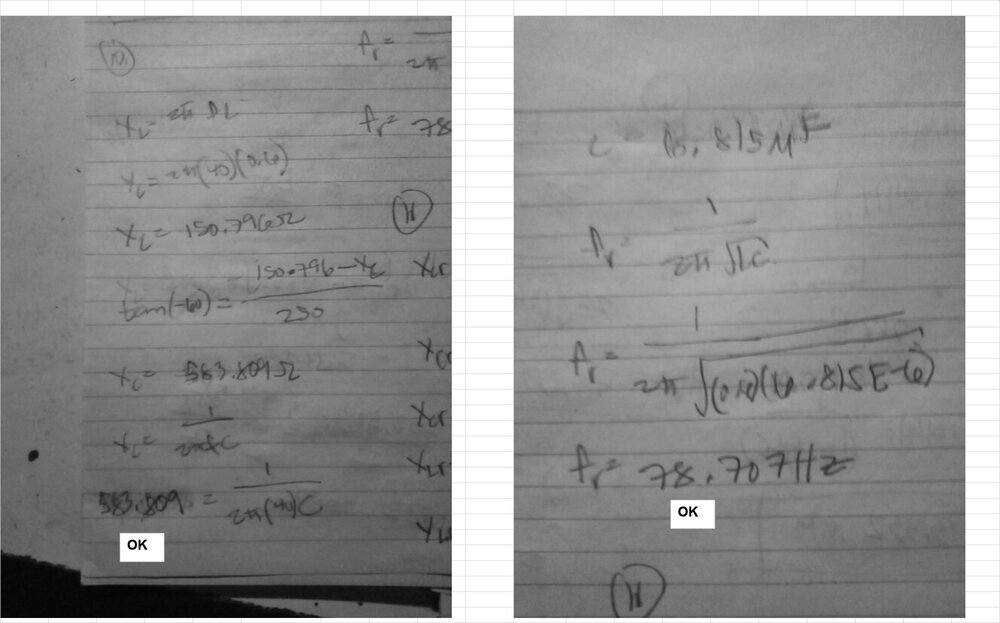 10.
fr =
2π
XL = 2π fL
fr = 78
XL = 2π(40)(0.6)
XL = 150.796Ω
11
tan(-60) = 150.796 - XC
250
XC = 583.809Ω
XC = 1
2πfC
583.809 = 1
2π(40)C
OK
C = 6.815μF
fr = 1
2π √LC
fr = 1
2π √(0.6)(6.815E-6)
fr = 78.707Hz
OK
11